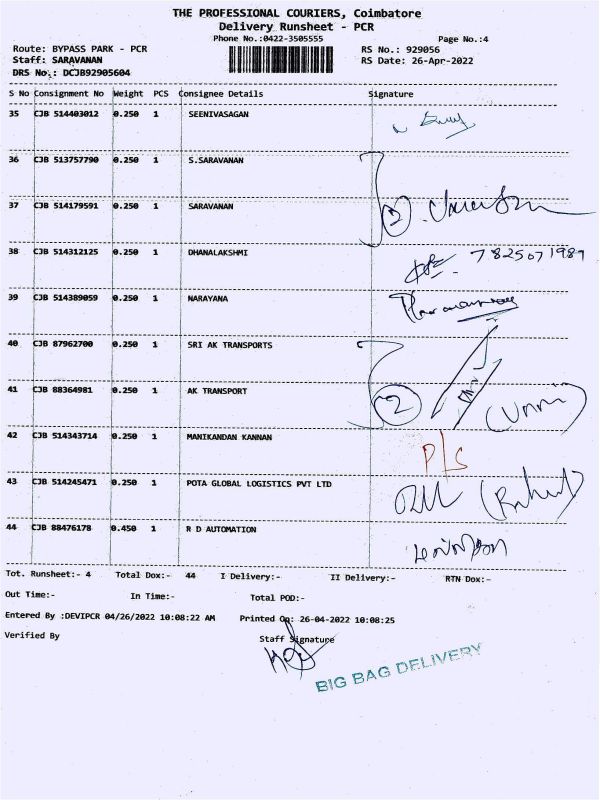 THE PROFESSIONAL COURIERS, Coimbatore
Delivery Runsheet - PCR
Phone No.:0422-3505555 Page No.:4
Route: BYPASS PARK - PCR RS No.: 929056
Staff: SARAVANAN RS Date: 26-Apr-2022
DRS No.: DCJB92905604
S No Consignment No Weight PCS Consignee Details Signature
35 CJB 514403012 0.250 1 SEENIVASAGAN
36 CJB 513757790 0.250 1 S.SARAVANAN
37 CJB 514179591 0.250 1 SARAVANAN 2
38 CJB 514312125 0.250 1 DHANALAKSHMI 7825071989
39 CJB 514389059 0.250 1 NARAYANA
40 CJB 87962700 0.250 1 SRI AK TRANSPORTS
41 CJB 88364981 0.250 1 AK TRANSPORT 2 (Unni)
42 CJB 514343714 0.250 1 MANIKANDAN KANNAN P/S
43 CJB 514245471 0.250 1 POTA GLOBAL LOGISTICS PVT LTD (Rahul)
44 CJB 88476178 0.450 1 R D AUTOMATION
Tot. Runsheet:- 4 Total Dox:- 44 I Delivery:- II Delivery:- RTN Dox:-
Out Time:- In Time:- Total POD:-
Entered By :DEVIPCR 04/26/2022 10:08:22 AM Printed On: 26-04-2022 10:08:25
Verified By Staff Signature
BIG BAG DELIVERY